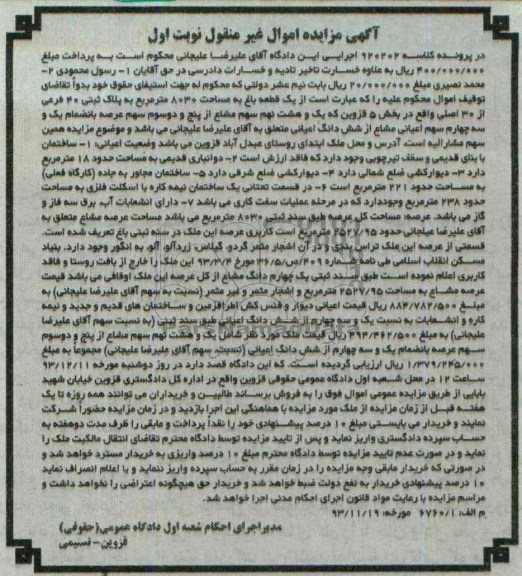 آگهی مزایده اموال غیر منقول نوبت اول
در پرونده کلاسه ۹۲۰۲۰۲ اجرایی این دادگاه آقای علیرضا علیجانی محکوم است به پرداخت مبلغ
۴۰۰/۰۰۰/۰۰۰ ریال به علاوه خسارت تاخیر تادیه و خسارات دادرسی در حق آقایان ۱- رسول محمودی ۲-
محمد نصیری مبلغ ۲۰/۰۰۰/۰۰۰ ریال بابت نیم عشر دولتی که محکوم له جهت استیفای حقوق خود بدواً تقاضای
توقیف اموال محکوم علیه را که عبارت است از یک قطعه باغ به مساحت ۸۰۳۰ مترمربع به پلاک ثبتی ۴۰ فرعی
از ۳۰ اصلی واقع در بخش ۵ قزوین که یک و هشت نهم سهم مشاع از پنج و دوسوم سهم عرصه بانضمام یک و
سه چهارم سهم اعیانی مشاع از شش دانگ اعیانی متعلق به آقای علیرضا علیجانی می باشد و موضوع مزایده همین
سهم مشارالیه است. آدرس و محل ملک ابتدای روستای عبدل آباد قزوین می باشد وضعیت اعیانی: ۱- ساختمان
با بنای قدیمی و سقف تیرچوبی وجود دارد که فاقد ارزش است ۲- دوانباری قدیمی به مساحت حدود ۱۸ مترمربع
دارد ۳- دیوارکشی ضلع شمالی دارد ۴- دیوارکشی ضلع شرقی دارد ۵- ساختمان مجاور به جاده (کارگاه فعلی)
به مساحت حدود ۲۲۱ مترمربع است ۶- در قسمت تحتانی یک ساختمان نیمه کاره با اسکلت فلزی به مساحت
حدود ۲۳۸ مترمربع وجوددارد که در مرحله عملیات سفت کاری می باشد ۷- دارای انشعابات آب، برق سه فاز و
گاز می باشد. عرصه: مساحت کل عرصه طبق سند ثبتی ۸۰۳۰ مترمربع می باشد مساحت عرصه مشاع متعلق به
آقای علیرضا علیجانی حدود ۲۵۲۷/۹۵ مترمربع است کاربری عرصه این ملک در سند ثبتی باغ تعریف شده است.
قسمتی از عرصه این ملک تراس بندی و در آن اشجار مثمر گردو، گیلاس، زردآلو، آلو، به انگور وجود دارد. بنیاد
مسکن انقلاب اسلامی طی نامه شماره ۳۶/۵/۴۰۹ص مورخ ۹۳/۳/۴ این ملک را خارج از بافت روستا و فاقد
کاربری اعلام نموده است طبق سند ثبتی یک چهارم دانگ مشاع از کل عرصه این ملک اوقافی می باشد قیمت
عرصه مشاع به مساحت ۲۵۲۷/۹۵ مترمربع و اشجار مثمر و غیر مثمر (نسبت به سهم آقای علیرضا علیجانی) به
مبلغ ۸۸۴/۷۸۲/۵۰۰ ریال قیمت اعیانی دیوار و فنس کش اطرافزمین و ساختمان های قدیم و جدید و نیمه
کاره و انشعابات به نسبت یک و سه چهارم از شش دانگ اعیانی طبق سند ثبتی (به نسبت سهم آقای علیرضا
علیجانی) به مبلغ ۴۹۴/۴۶۲/۵۰۰ ریال قیمت ملک مورد نظر شامل یک و هشت نهم سهم مشاع از پنج و دوسوم
سهم عرصه بانضمام یک و سه چهارم از شش دانگ اعیانی (نسبت سهم آقای علیرضا علیجانی) مجموعاً به مبلغ
۱/۳۷۹/۲۴۵/۰۰۰ ریال ارزیابی گردیده است. که این دادگاه قصد دارد در روز دوشنبه مورخه ۹۳/۱۲/۱۱
ساعت ۱۲ در محل شعبه اول دادگاه عمومی حقوقی قزوین واقع در اداره کل دادگستری قزوین خیابان شهید
بابایی از طریق مزایده عمومی اموال فوق را به فروش برساند طالبین و خریداران می توانند همه روزه تا یک
هفته قبل از زمان مزایده از ملک مورد مزایده با هماهنگی این اجرا بازدید و در زمان مزایده حضوراً شرکت
نمایند و خریدار می بایستی مبلغ ۱۰ درصد پیشنهادی خود را نقداً پرداخت و مابقی را ظرف مدت دوهفته به
حساب سپرده دادگستری واریز نماید و پس از تایید مزایده توسط دادگاه محترم تقاضای انتقال مالکیت ملک را
نماید و در صورت عدم تایید مزایده توسط دادگاه محترم مبلغ ۱۰ درصد واریزی به خریدار مسترد خواهد شد و
در صورتی که خریدار مابقی وجه مزایده را در زمان مقرر به حساب سپرده واریز ننماید و یا اعلام انصراف نماید
۱۰ درصد پیشنهادی خریدار به نفع دولت ضبط خواهد شد و خریدار حق هیچگونه اعتراضی را نخواهد داشت و
مراسم مزایده با رعایت مواد قانون اجرای احکام مدنی اجرا خواهد شد.
م الف: ۶۷۶۰/۱ مورخه: ۹۳/۱۱/۱۹
مدیراجرای احکام شعبه اول دادگاه عمومی(حقوقی)
قزوین- نسیمی